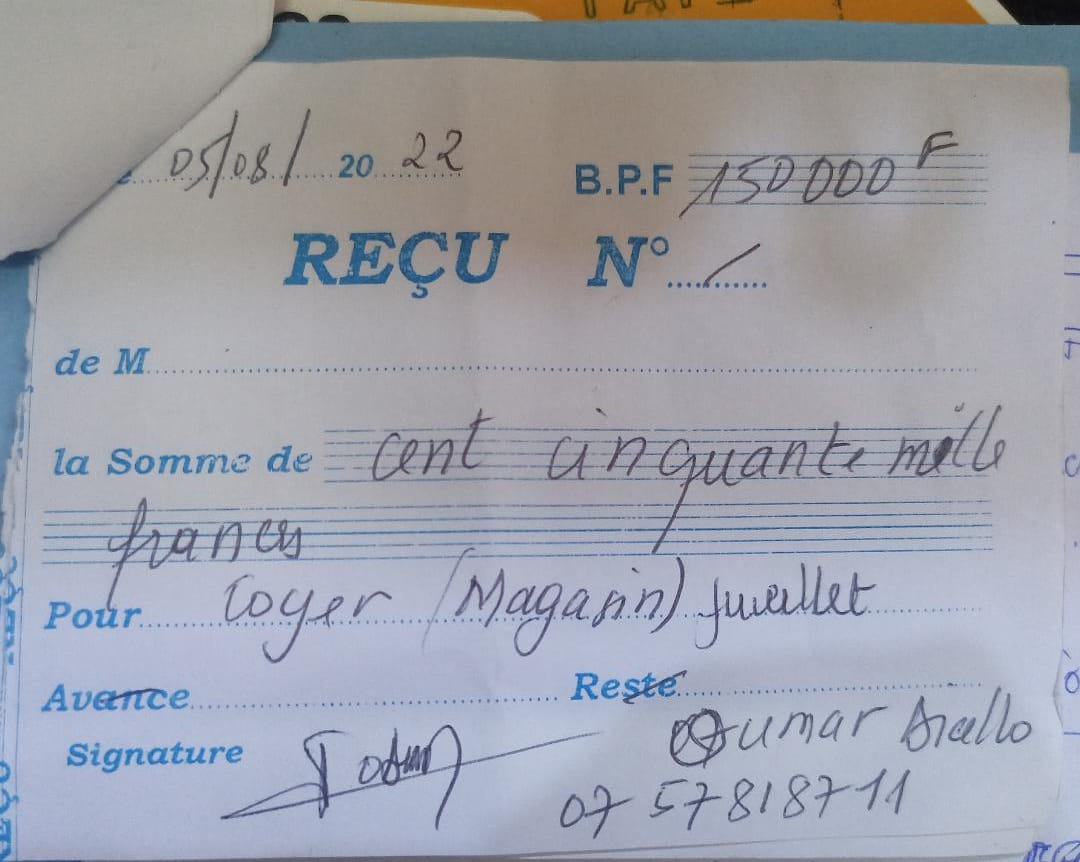 05/08/ 20 22 B.P.F 150 000 F
REÇU N° 1
de M
la Somme de cent cinquante mille
francs
Pour Loyer (Magasin) Jueillet
Avance Reste
Signature Oumar Diallo
07 57 81 87 11